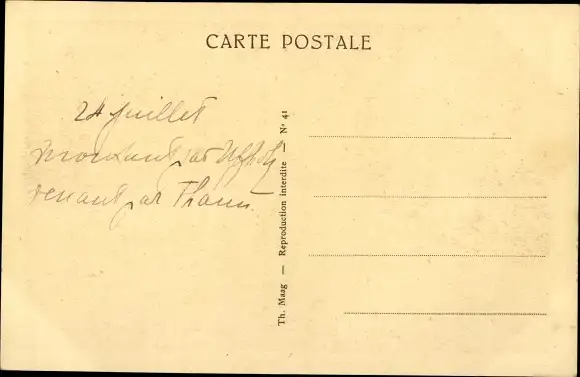 CARTE POSTALE
24 juillet
montant par Uffholz
venant par Thann.
Th. Maag — Reproduction interdite — Nº 41